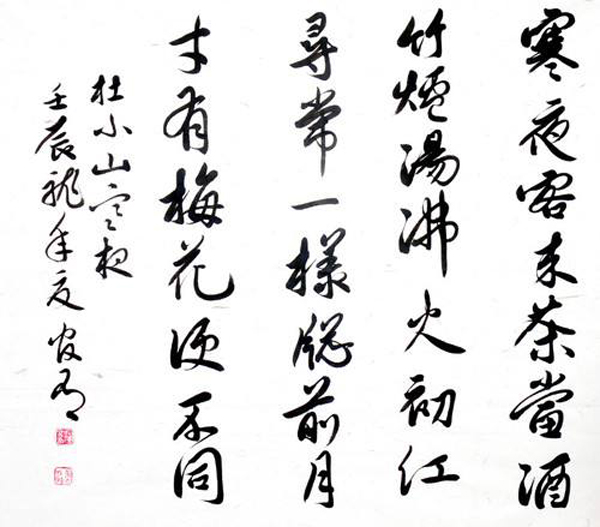 寒夜客来茶當酒
竹爐湯沸火初紅
尋常一樣牎前月
才有梅花便不同
杜小山寒夜
壬辰龍年夏